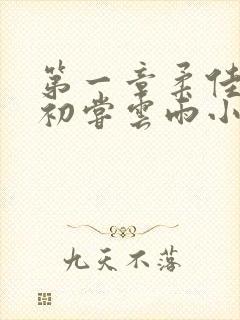 第一章柔佳
初尝雲雨小
九天不落